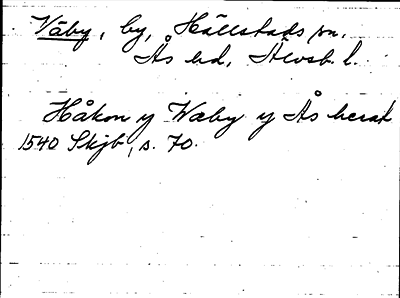 Väby, by, Hällstads sn.
Ås hd, Älvsb. l.
Håkon y Wæby y Ås herat
1540 Skjb, s. 70.